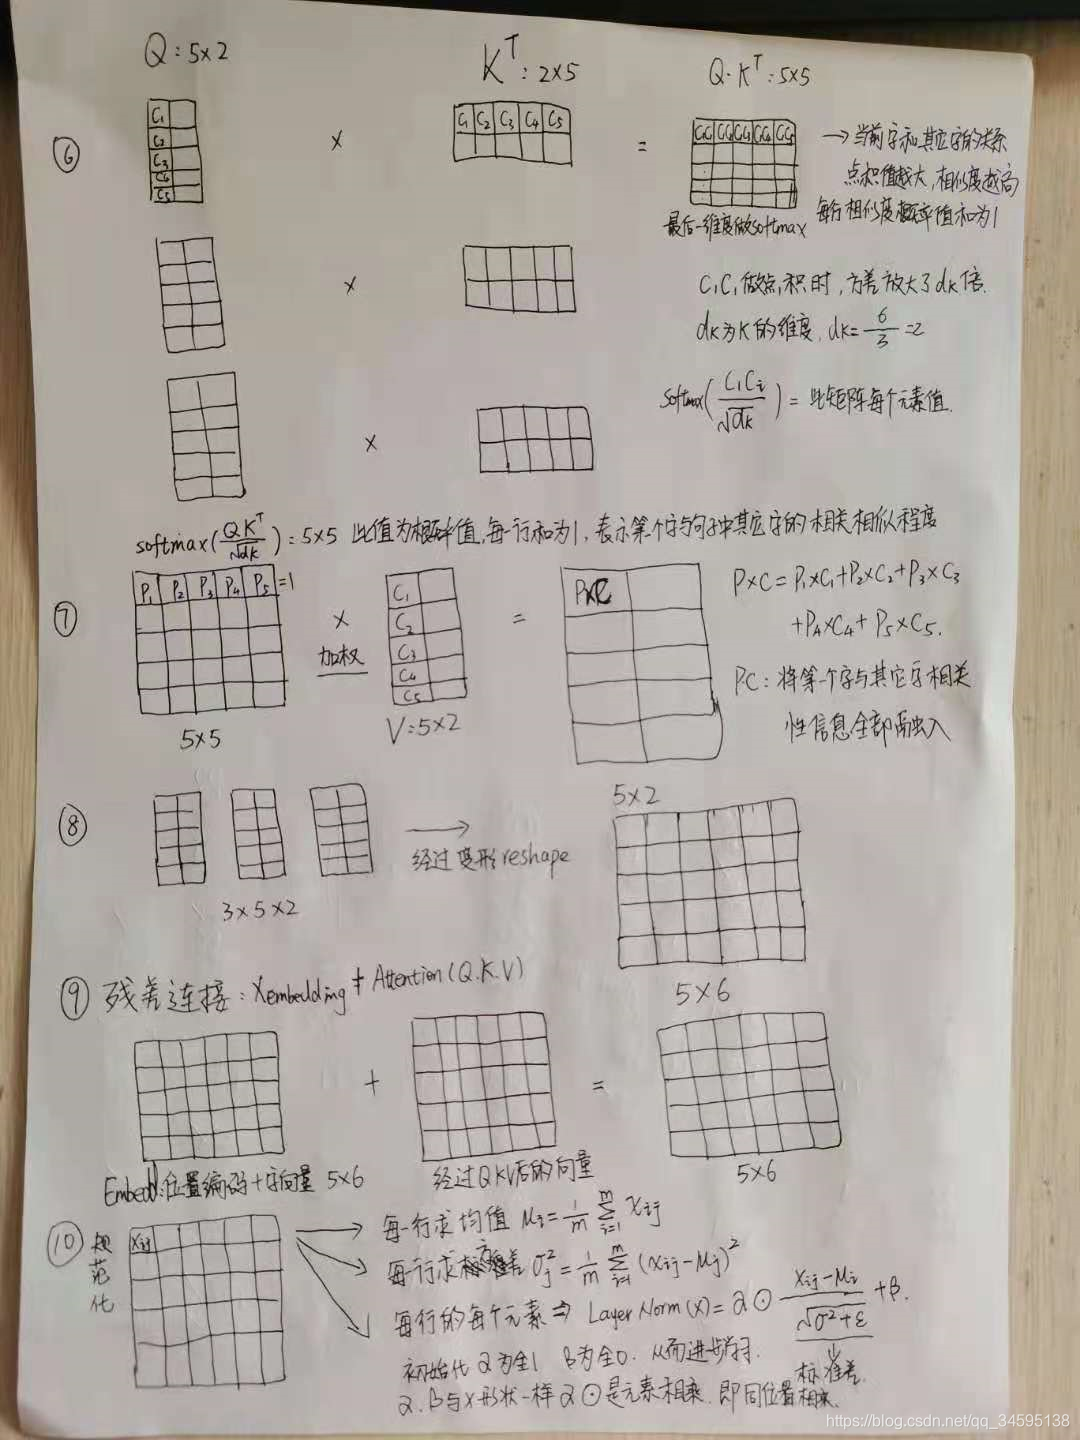 Q:5×2
K^T:2×5
Q·K^T:5×5
⑥
C1
C2
C3
C4
C5
×
C1 C2 C3 C4 C5
=
C1C1 C1C2 C1C3 C1C4 C1C5
→当前字和其它字的关系
点积值越大,相似度越高
每行相似度概率值和为1
最后一维度做softmax
×
C1C1做点积时,方差放大了dk倍.
dk为K的维度,dk=6/3=2
softmax(C1Ci/√dk)=此矩阵每个元素值.
×
softmax(QK^T/√dk):5×5 此值为概率值,每一行和为1,表示第个字与句子中其它字的相关相似程度
⑦
P1 P2 P3 P4 P5 =1
×
加权
C1
C2
C3
C4
C5
=
P×C
P×C=P1×C1+P2×C2+P3×C3
+P4×C4+P5×C5.
PC:将第一个字与其它字相关
性信息全部融入
5×5
V=5×2
5×2
⑧
→
经过变形reshape
3×5×2
5×6
⑨残差连接:Xembedding+Attention(Q.K.V)
+
=
Embed:位置编码+字向量 5×6
经过QKV后的向量
5×6
⑩规范化
xij
每一行求均值 μi=1/m ∑(i=1→m) xij
每一行求方差 σj²=1/m ∑(i=1→m) (xij-μj)²
每行的每个元素⇒ LayerNorm(x)=α⊙ (xij-μi)/√(σ²+ε) +β.
标准差.
初始化α为全1 β为全0. 从而进步学习.
α.β与x形状一样 α⊙是元素相乘.即同位置相乘.
https://blog.csdn.net/qq_34595138